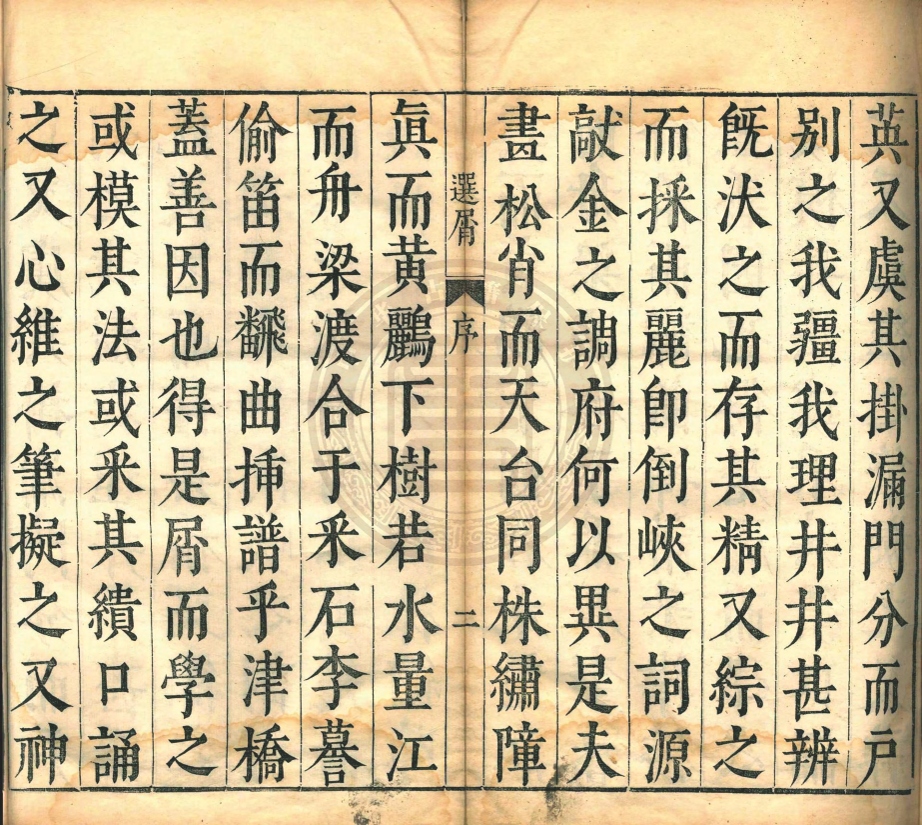 英又虞其掛漏門分而戸
別之我疆我理井井甚辨
旣汏之而存其精又綜之
而採其麗卽倒峽之詞源
敲金之調府何以異是夫
畫松肖而天台同株繡障
選屑 序 二
眞而黄鸝下樹若水量江
而舟梁渡合于采石李謩
偷笛而飜曲揷譜乎津橋
蓋善因也得是屑而學之
或模其法或采其繢口誦
之又心維之筆擬之又神